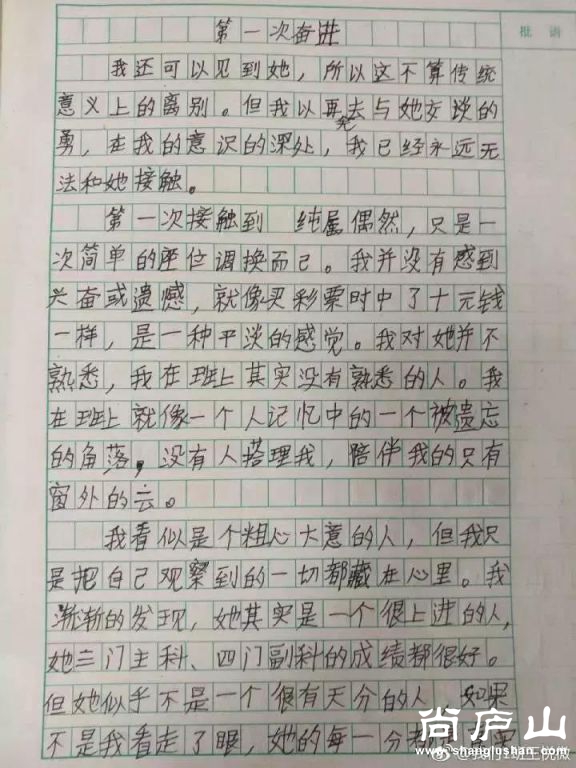 批语
第一次奋进
我还可以见到她，所以这不算传统
意义上的离别。但我以再去与她交谈的
勇，在我的意识的深处，我已经永远无
法和她接触。
第一次接触到 纯属偶然，只是一
次简单的座位调换而己。我并没有感到
兴奋或遗憾，就像买彩票时中了十元钱
一样，是一种平淡的感觉。我对她并不
熟悉，我在班上其实没有熟悉的人。我
在班上就像一个人记忆中的一个被遗忘
的角落，没有人搭理我，陪伴我的只有
窗外的云。
我看似是个粗心大意的人，但我只
是把自己观察到的一切都藏在心里。我
渐渐的发现，她其实是一个很上进的人，
她三门主科、四门副科的成绩都很好。
但她似乎不是一个很有天分的人 如果
不是我看走了眼，她的每一分
尚庐山
www.shanglushan.com